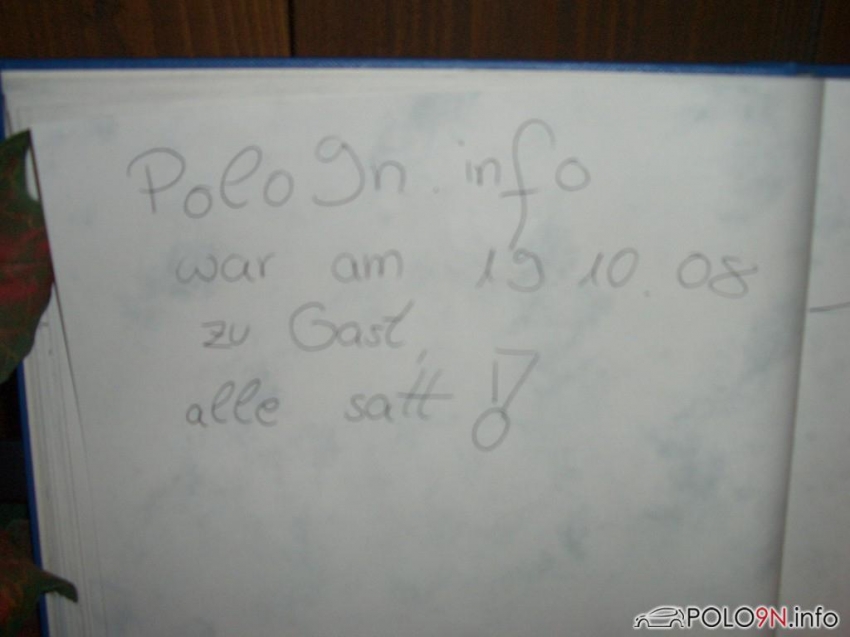 Polo9n.info
war am 19 10.08
zu Gast,
alle satt!
POLO9N.info